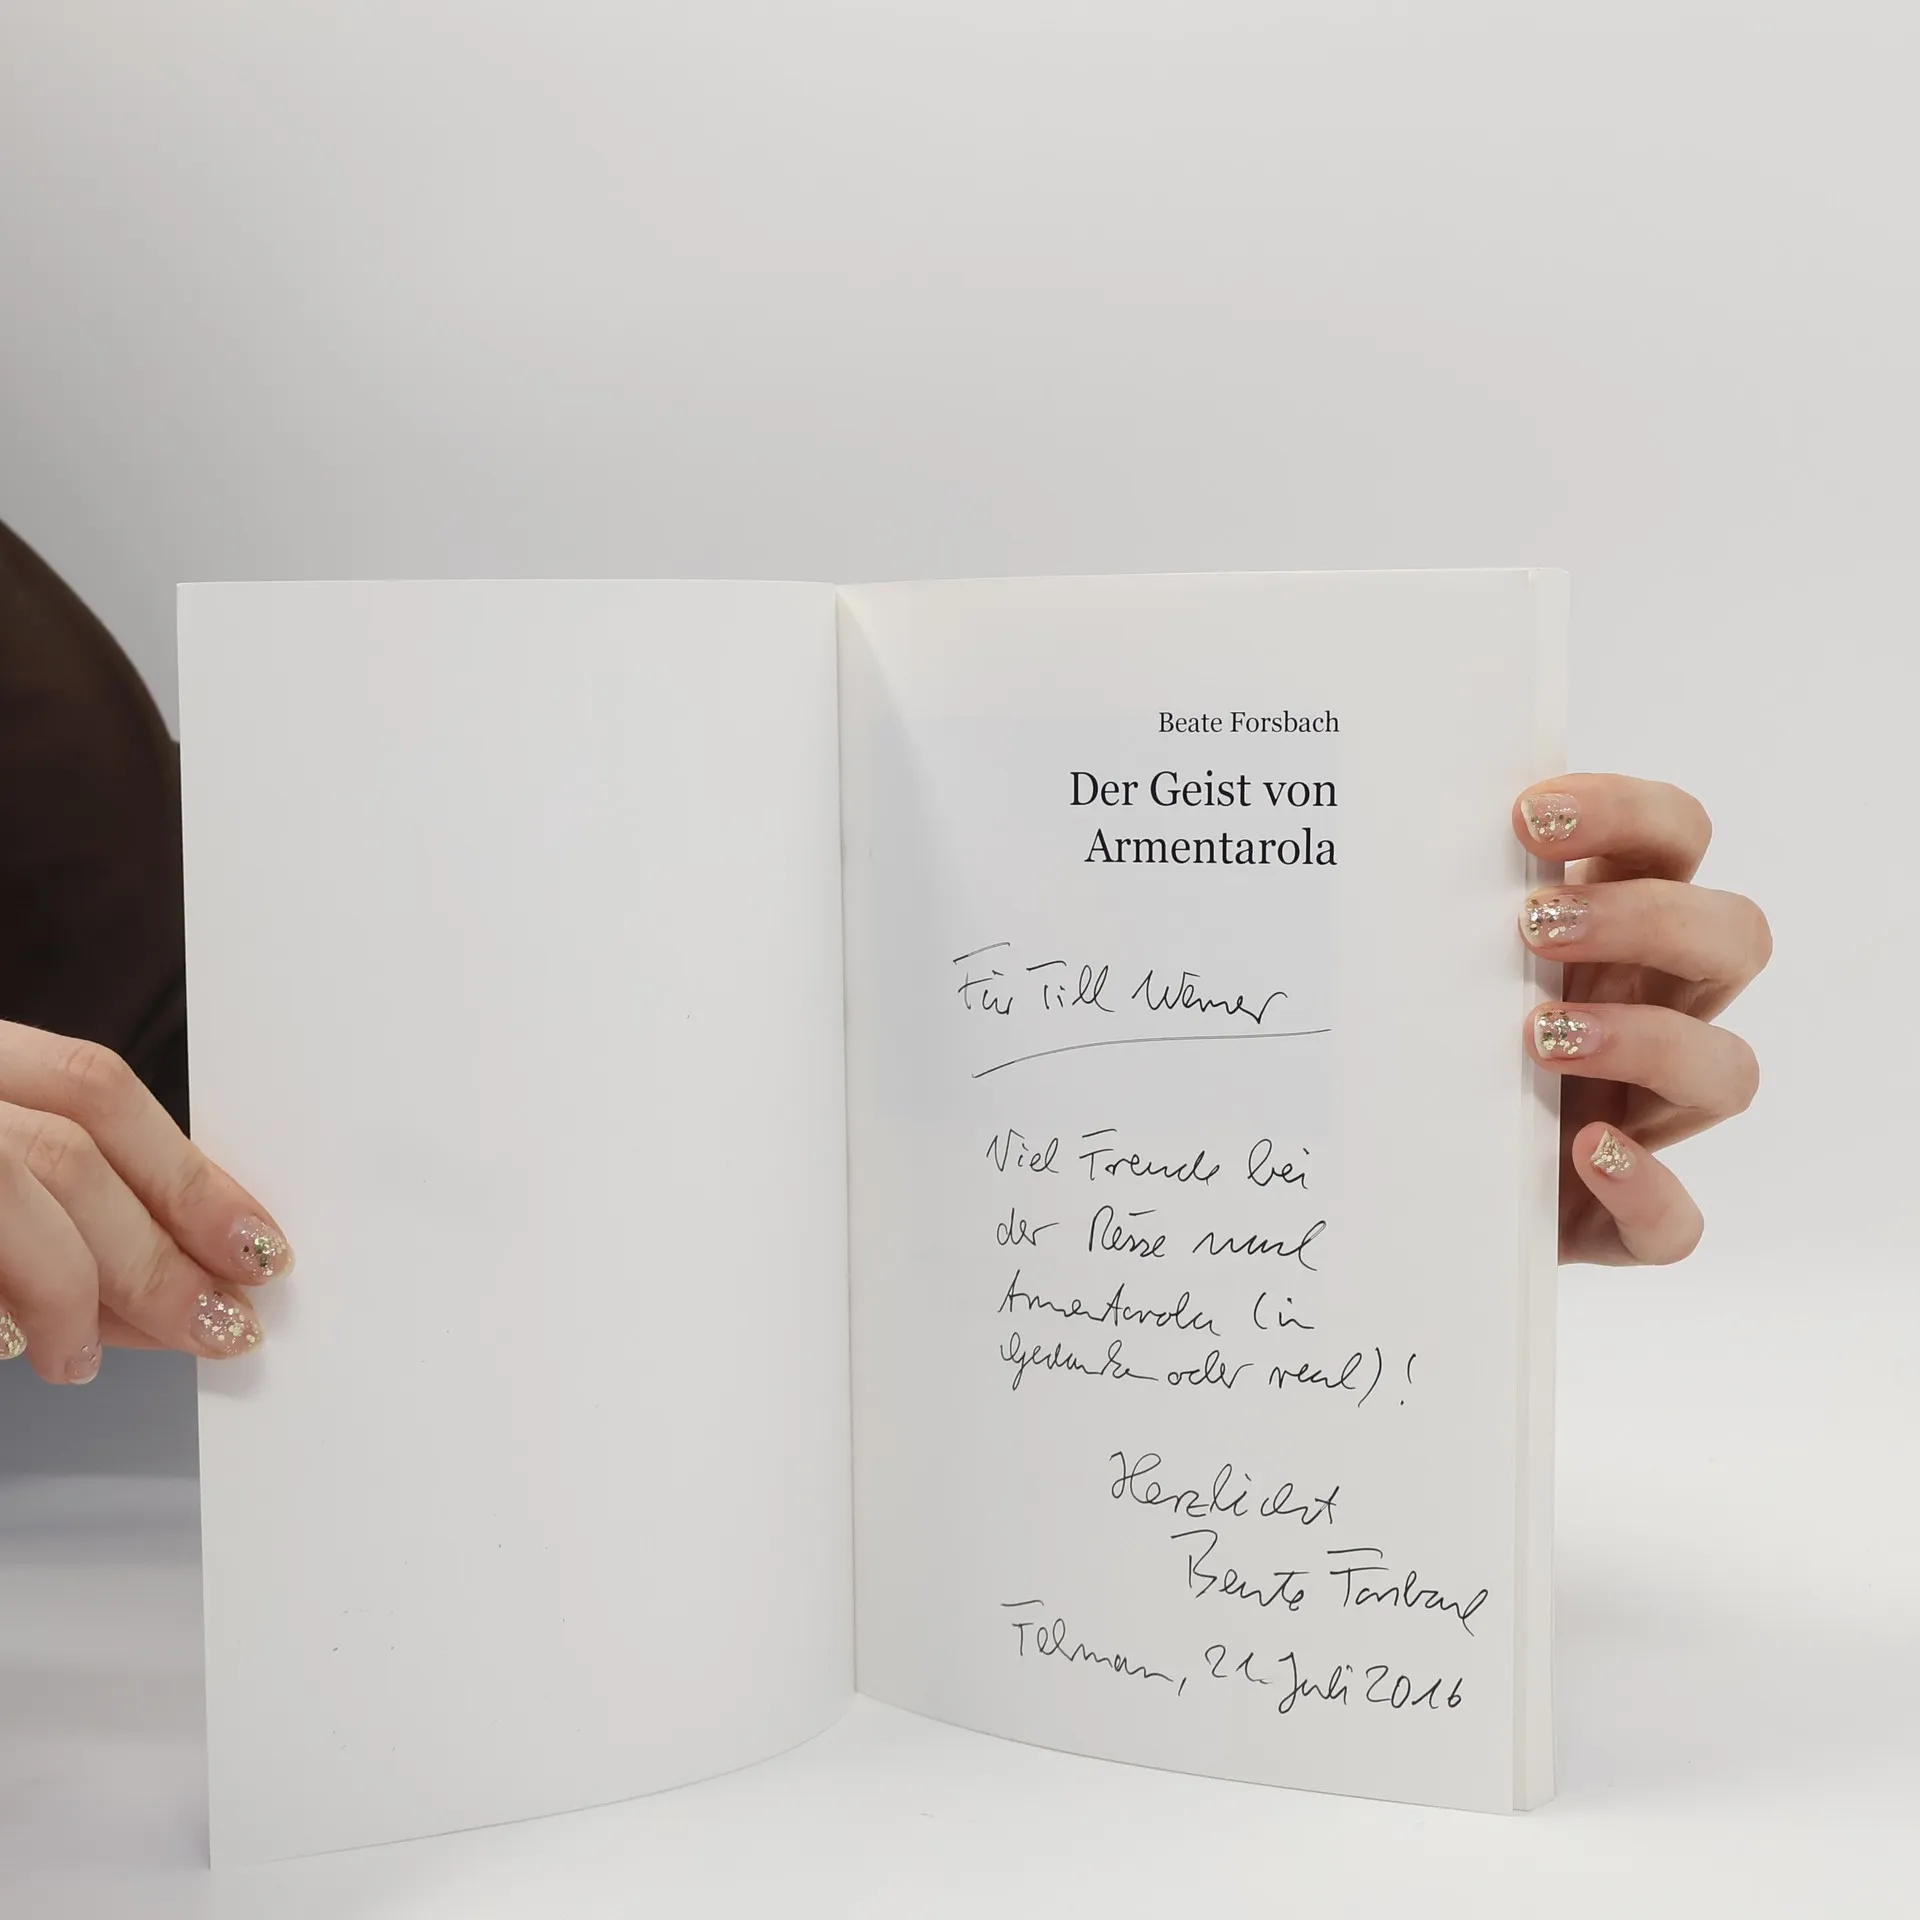 Beate Forsbach
Der Geist von
Armentarola
Für Till Werner
Viel Freude bei
der Reise nach
Armentarola (in
Gedanken oder real)!
Herzlichst
Beate Forsbach
21. Juli 2016